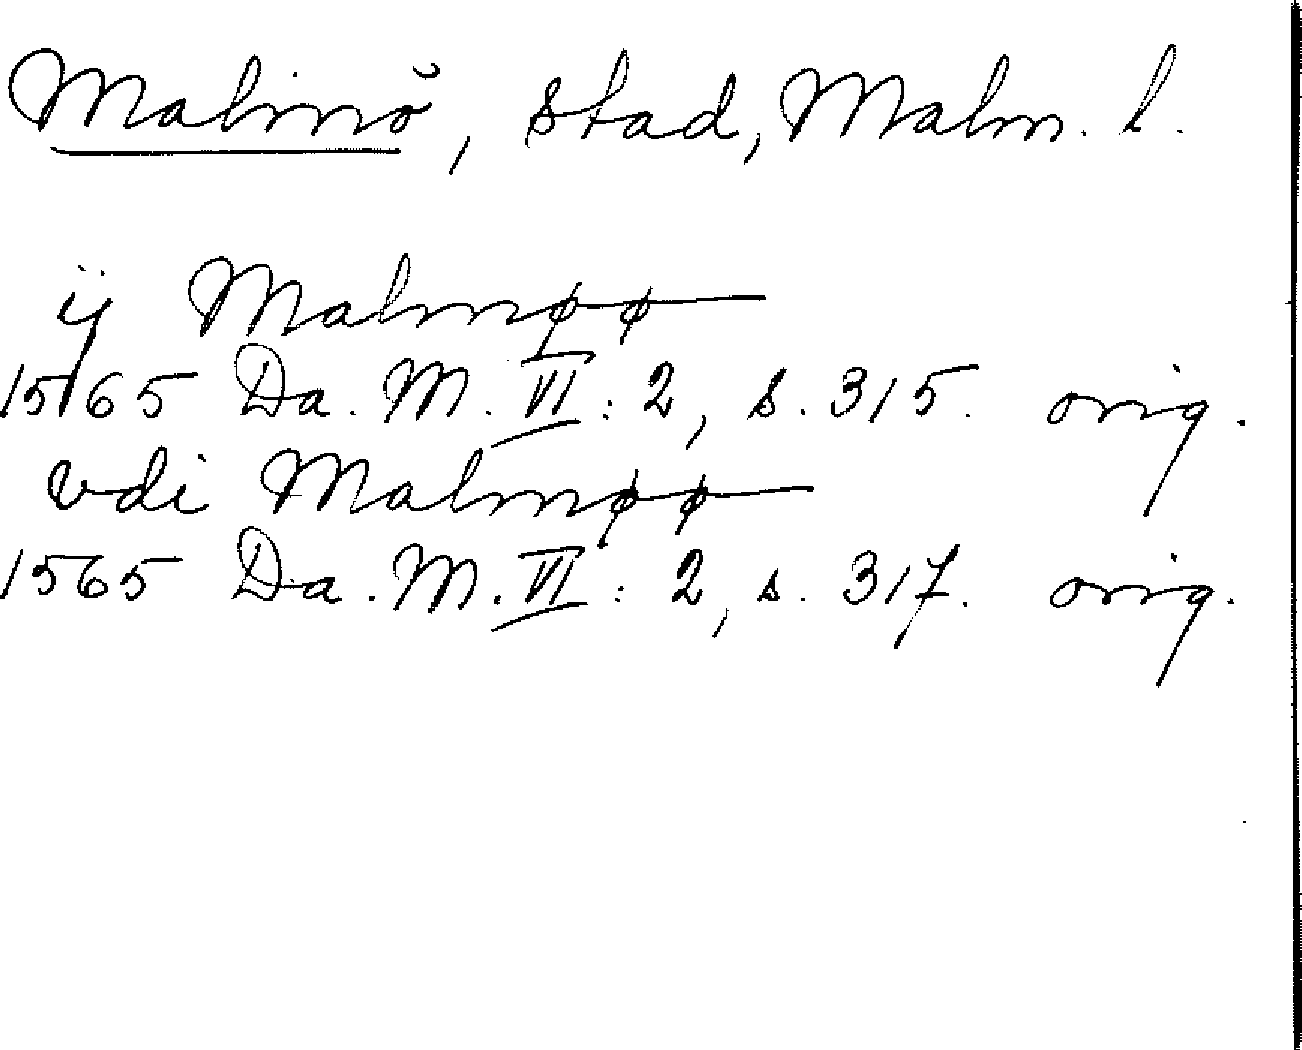 Malmö, stad, Malm. l.
ÿ Malmøø
1565 Da. M. VI : 2, s. 315. orig.
vdi Malmøø
1565 Da. M. VI : 2, s. 317. orig.